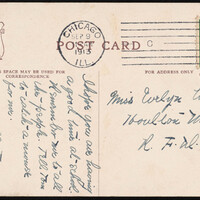 CHICAGO
SEP 9
1913
ILL.
C
POST CARD
SPACE MAY BE USED FOR
CORRESPONDENCE
FOR ADDRESS ONLY
I hope you are having
a good time at
Remember me to all
the people. Tell Tom
to
for me.
Miss Evelyn
Houlton
R.F.D.